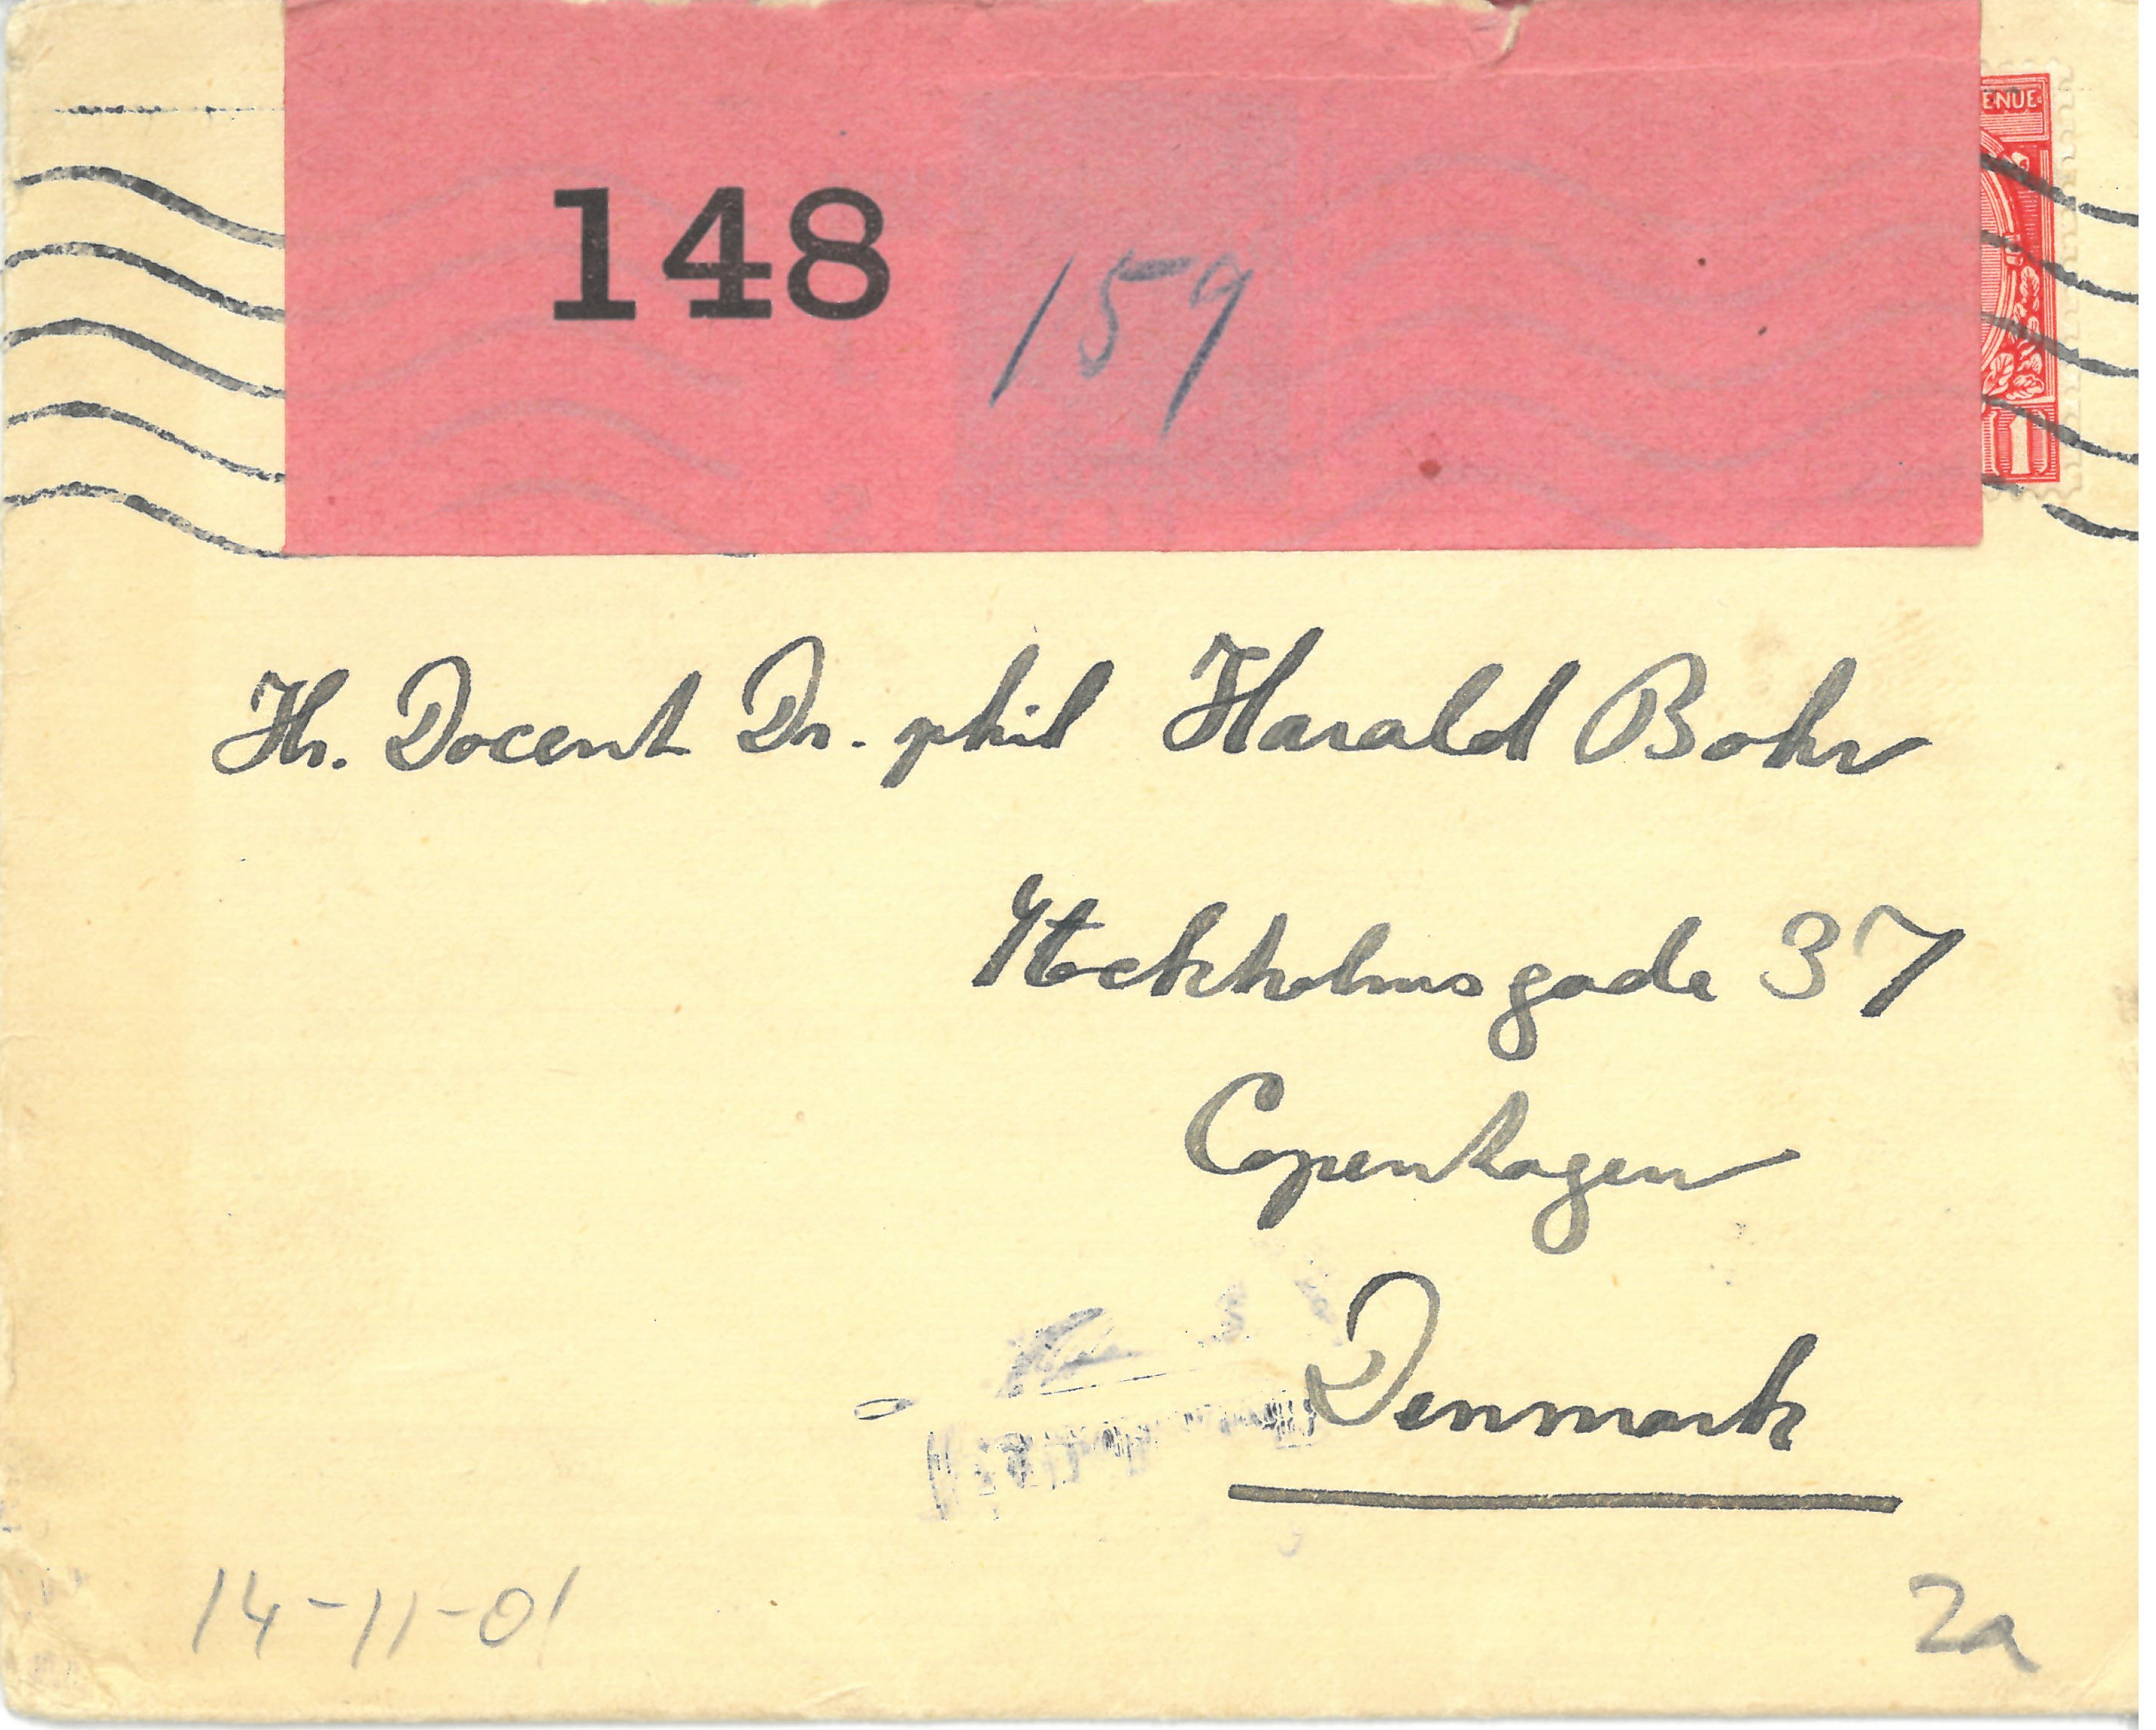 ENUE
148
159
1
Hr. Docent Dr. phil Harald Bohr
Stockholmsgade 37
Copenhagen
Denmark
14-11-01
2a